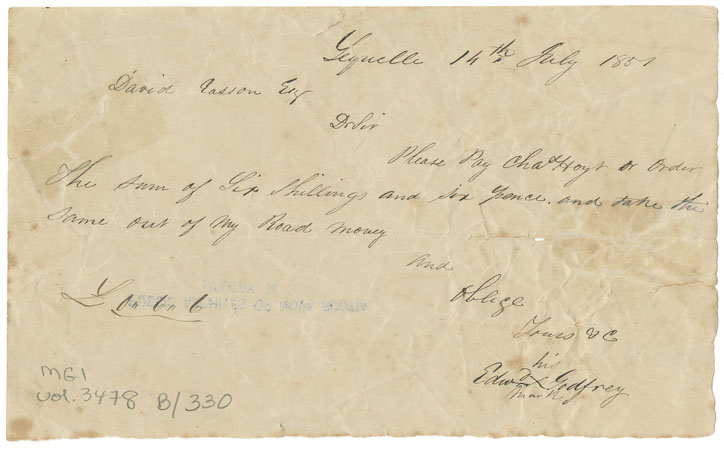 Lequelle 14th July 1851
David Rasson Esq
Dr Sir
Please Pay Chas Hoyt or order
The sum of Six Shillings and six pence. and take the
Same out of My Road money
and
oblige
£ 0,, 6,, 6
HALIFAX, N. S.
PUBLIC ARCHIVES OF NOVA SCOTIA
Yours &C
his
Edwd X Godfrey
Mark
MG1
vol. 3478 B/330